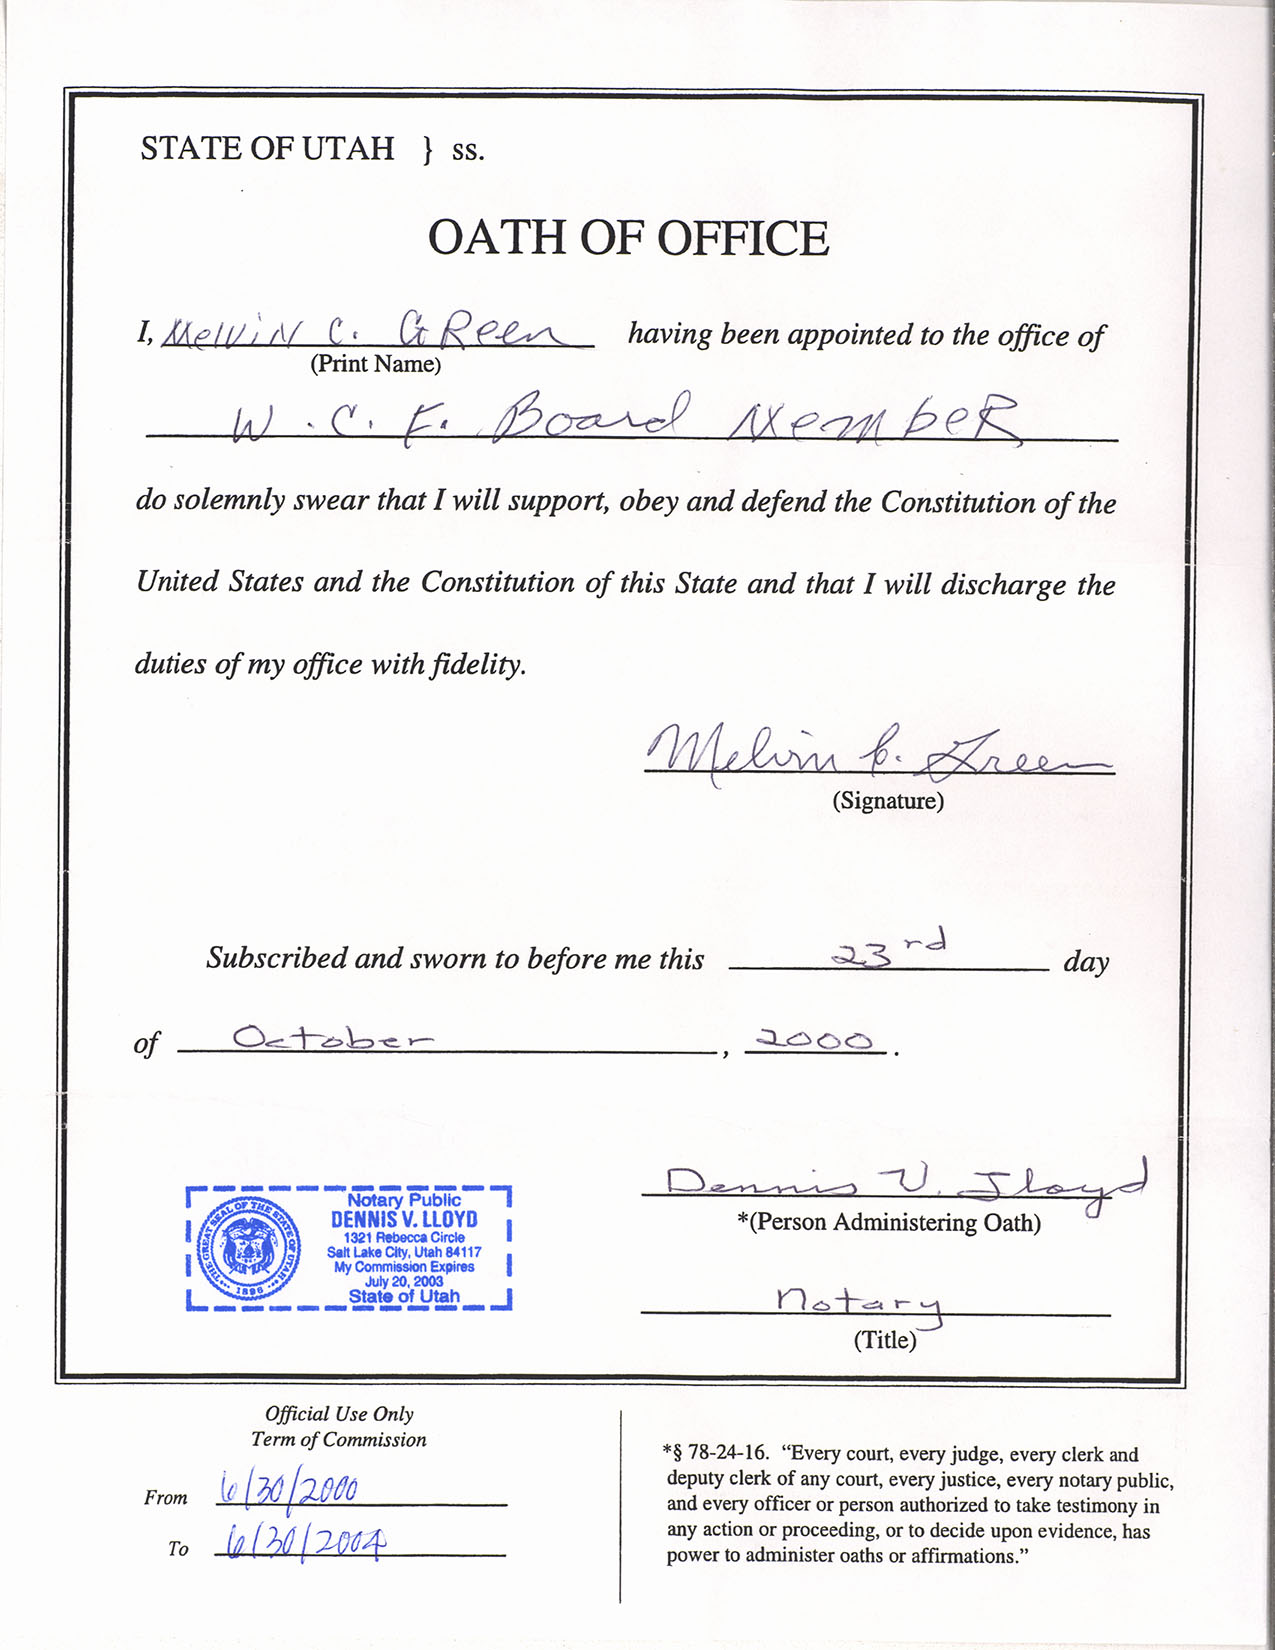 STATE OF UTAH } ss.
OATH OF OFFICE
I, Melvin C. Green having been appointed to the office of
(Print Name)
W.C.F. Board Member
do solemnly swear that I will support, obey and defend the Constitution of the
United States and the Constitution of this State and that I will discharge the
duties of my office with fidelity.
Melvin C. Green
(Signature)
Subscribed and sworn to before me this 23rd day
of October, 2000.
Dennis V. Lloyd
*(Person Administering Oath)
Notary
(Title)
THE GREAT SEAL OF THE STATE OF UTAH
1896
Notary Public
DENNIS V. LLOYD
1321 Rebecca Circle
Salt Lake City, Utah 84117
My Commission Expires
July 20, 2003
State of Utah
Official Use Only
Term of Commission
From 6/30/2000
To 6/30/2004
*§ 78-24-16. “Every court, every judge, every clerk and
deputy clerk of any court, every justice, every notary public,
and every officer or person authorized to take testimony in
any action or proceeding, or to decide upon evidence, has
power to administer oaths or affirmations.”